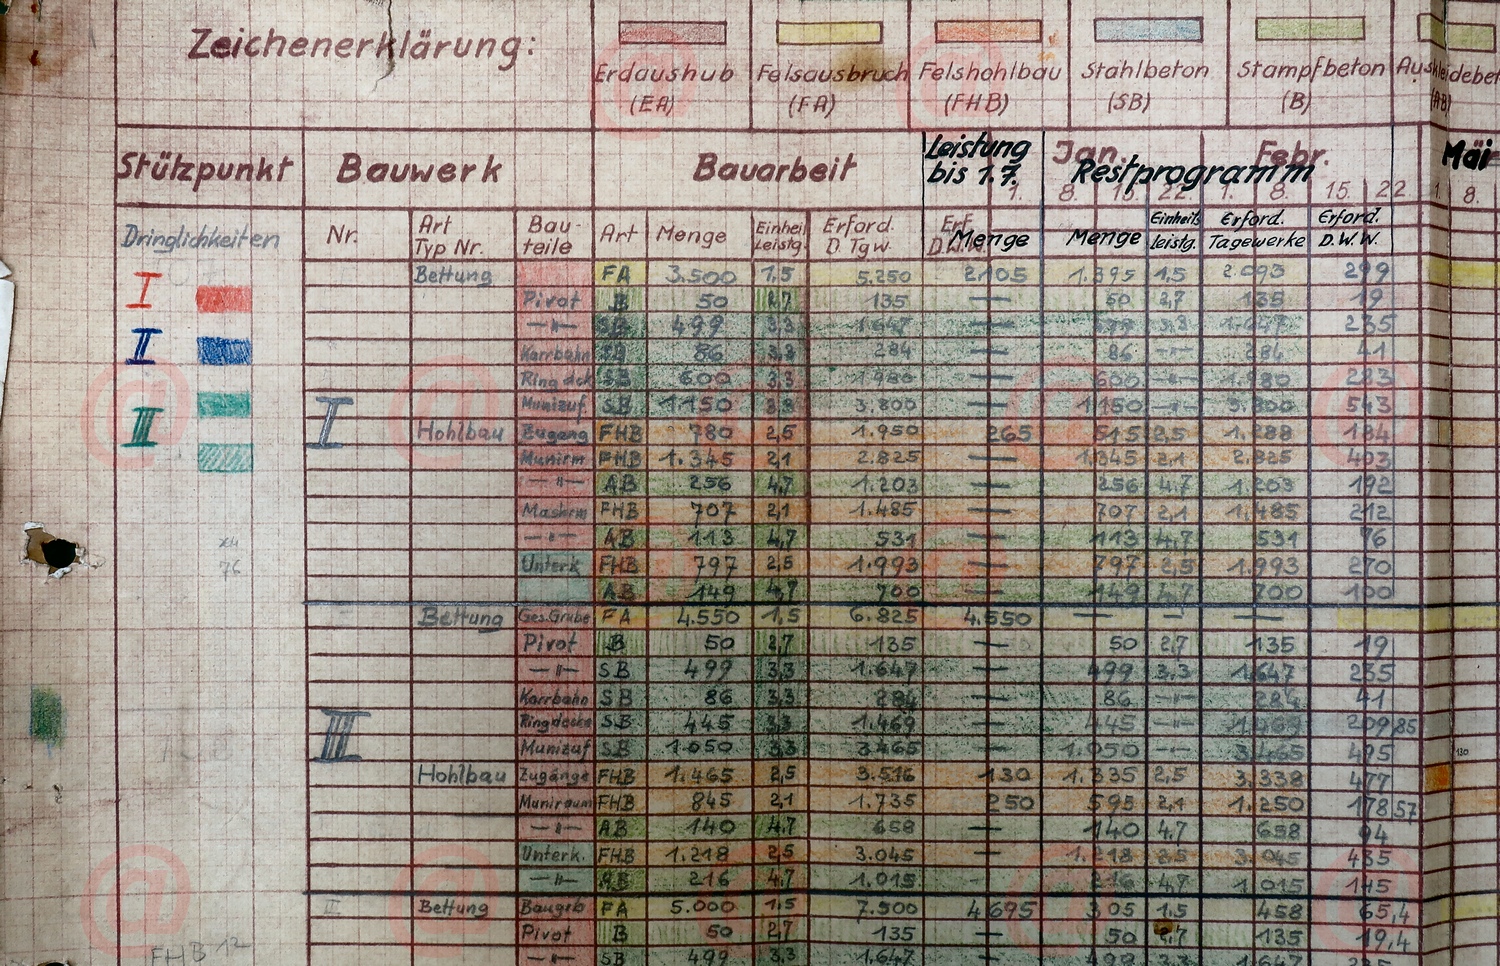 Zeichenerklärung:
Erdaushub (EA)
Felsausbruch (FA)
Felshohlbau (FHB)
Stahlbeton (SB)
Stampfbeton (B)
Stützpunkt Bauwerk Bauarbeit Leistung bis 1.7. Jan. Febr. Restprogramm Mai
1. 8. 15. 22. 1. 8. 15. 22 1. 8.
Dringlichkeiten Nr. Art Typ Nr. Bauteile Art Menge Einheit Leistg. Erford. D. Tgw. Erf. Menge Menge Einheits Leistg. Erford. Tagewerke Erford. D.W.W.
I
II
III
Bettung FA 3.500 1,5 5.250 2105 1.395 1,5 2.093 299
Pivot B 50 2,7 135 — 50 2,7 135 19
—"— SB 499 3,3 1.647 — 499 3,3 1.647 235
Karrbahn SB 86 3,3 284 — 86 —"— 284 41
Ringdck SB 600 3,3 1.980 — 600 —"— 1.980 283
I Munizuf. SB 1150 3,3 3.800 — 1150 —"— 3.800 543
Hohlbau Zugang FHB 780 2,5 1.950 265 515 2,5 1.288 184
Munirm FHB 1.345 2,1 2.825 — 1.345 2,1 2.825 403
—"— AB 256 4,7 1.203 — 256 4,7 1.203 192
Maskrm FHB 707 2,1 1.485 — 707 2,1 1.485 212
—"— AB 113 4,7 531 — 113 4,7 531 76
Unterk FHB 797 2,5 1.993 — 797 2,5 1.993 270
AB 149 4,7 700 — 149 4,7 700 100
Bettung Ges.Grube FA 4.550 1,5 6.825 4.550 — — —
Pivot B 50 2,7 135 — 50 2,7 135 19
—"— SB 499 3,3 1.647 — 499 3,3 1.647 235
Karrbahn SB 86 3,3 284 — 86 —"— 284 41
II Ringdecke SB 445 3,3 1.469 — 445 —"— 1.469 209,85
Munizuf SB 1050 3,3 3.465 — 1.050 —"— 3.465 495 130
Hohlbau Zugänge FHB 1.465 2,5 3.516 130 1.335 2,5 3.338 477
Muniraum FHB 845 2,1 1.735 250 595 2,1 1.250 178,57
—"— AB 140 4,7 658 — 140 4,7 658 94
Unterk. FHB 1.218 2,5 3.045 — 1.218 2,5 3.045 435
—"— AB 216 4,7 1.015 — 216 4,7 1.015 145
III Bettung Baugrb FA 5.000 1,5 7.500 4695 305 1,5 458 65,4
Pivot B 50 2,7 135 — 50 2,7 135 19,4
—"— SB 499 3,3 1.647 — 499 3,3 1.647 235
76
FHB 12